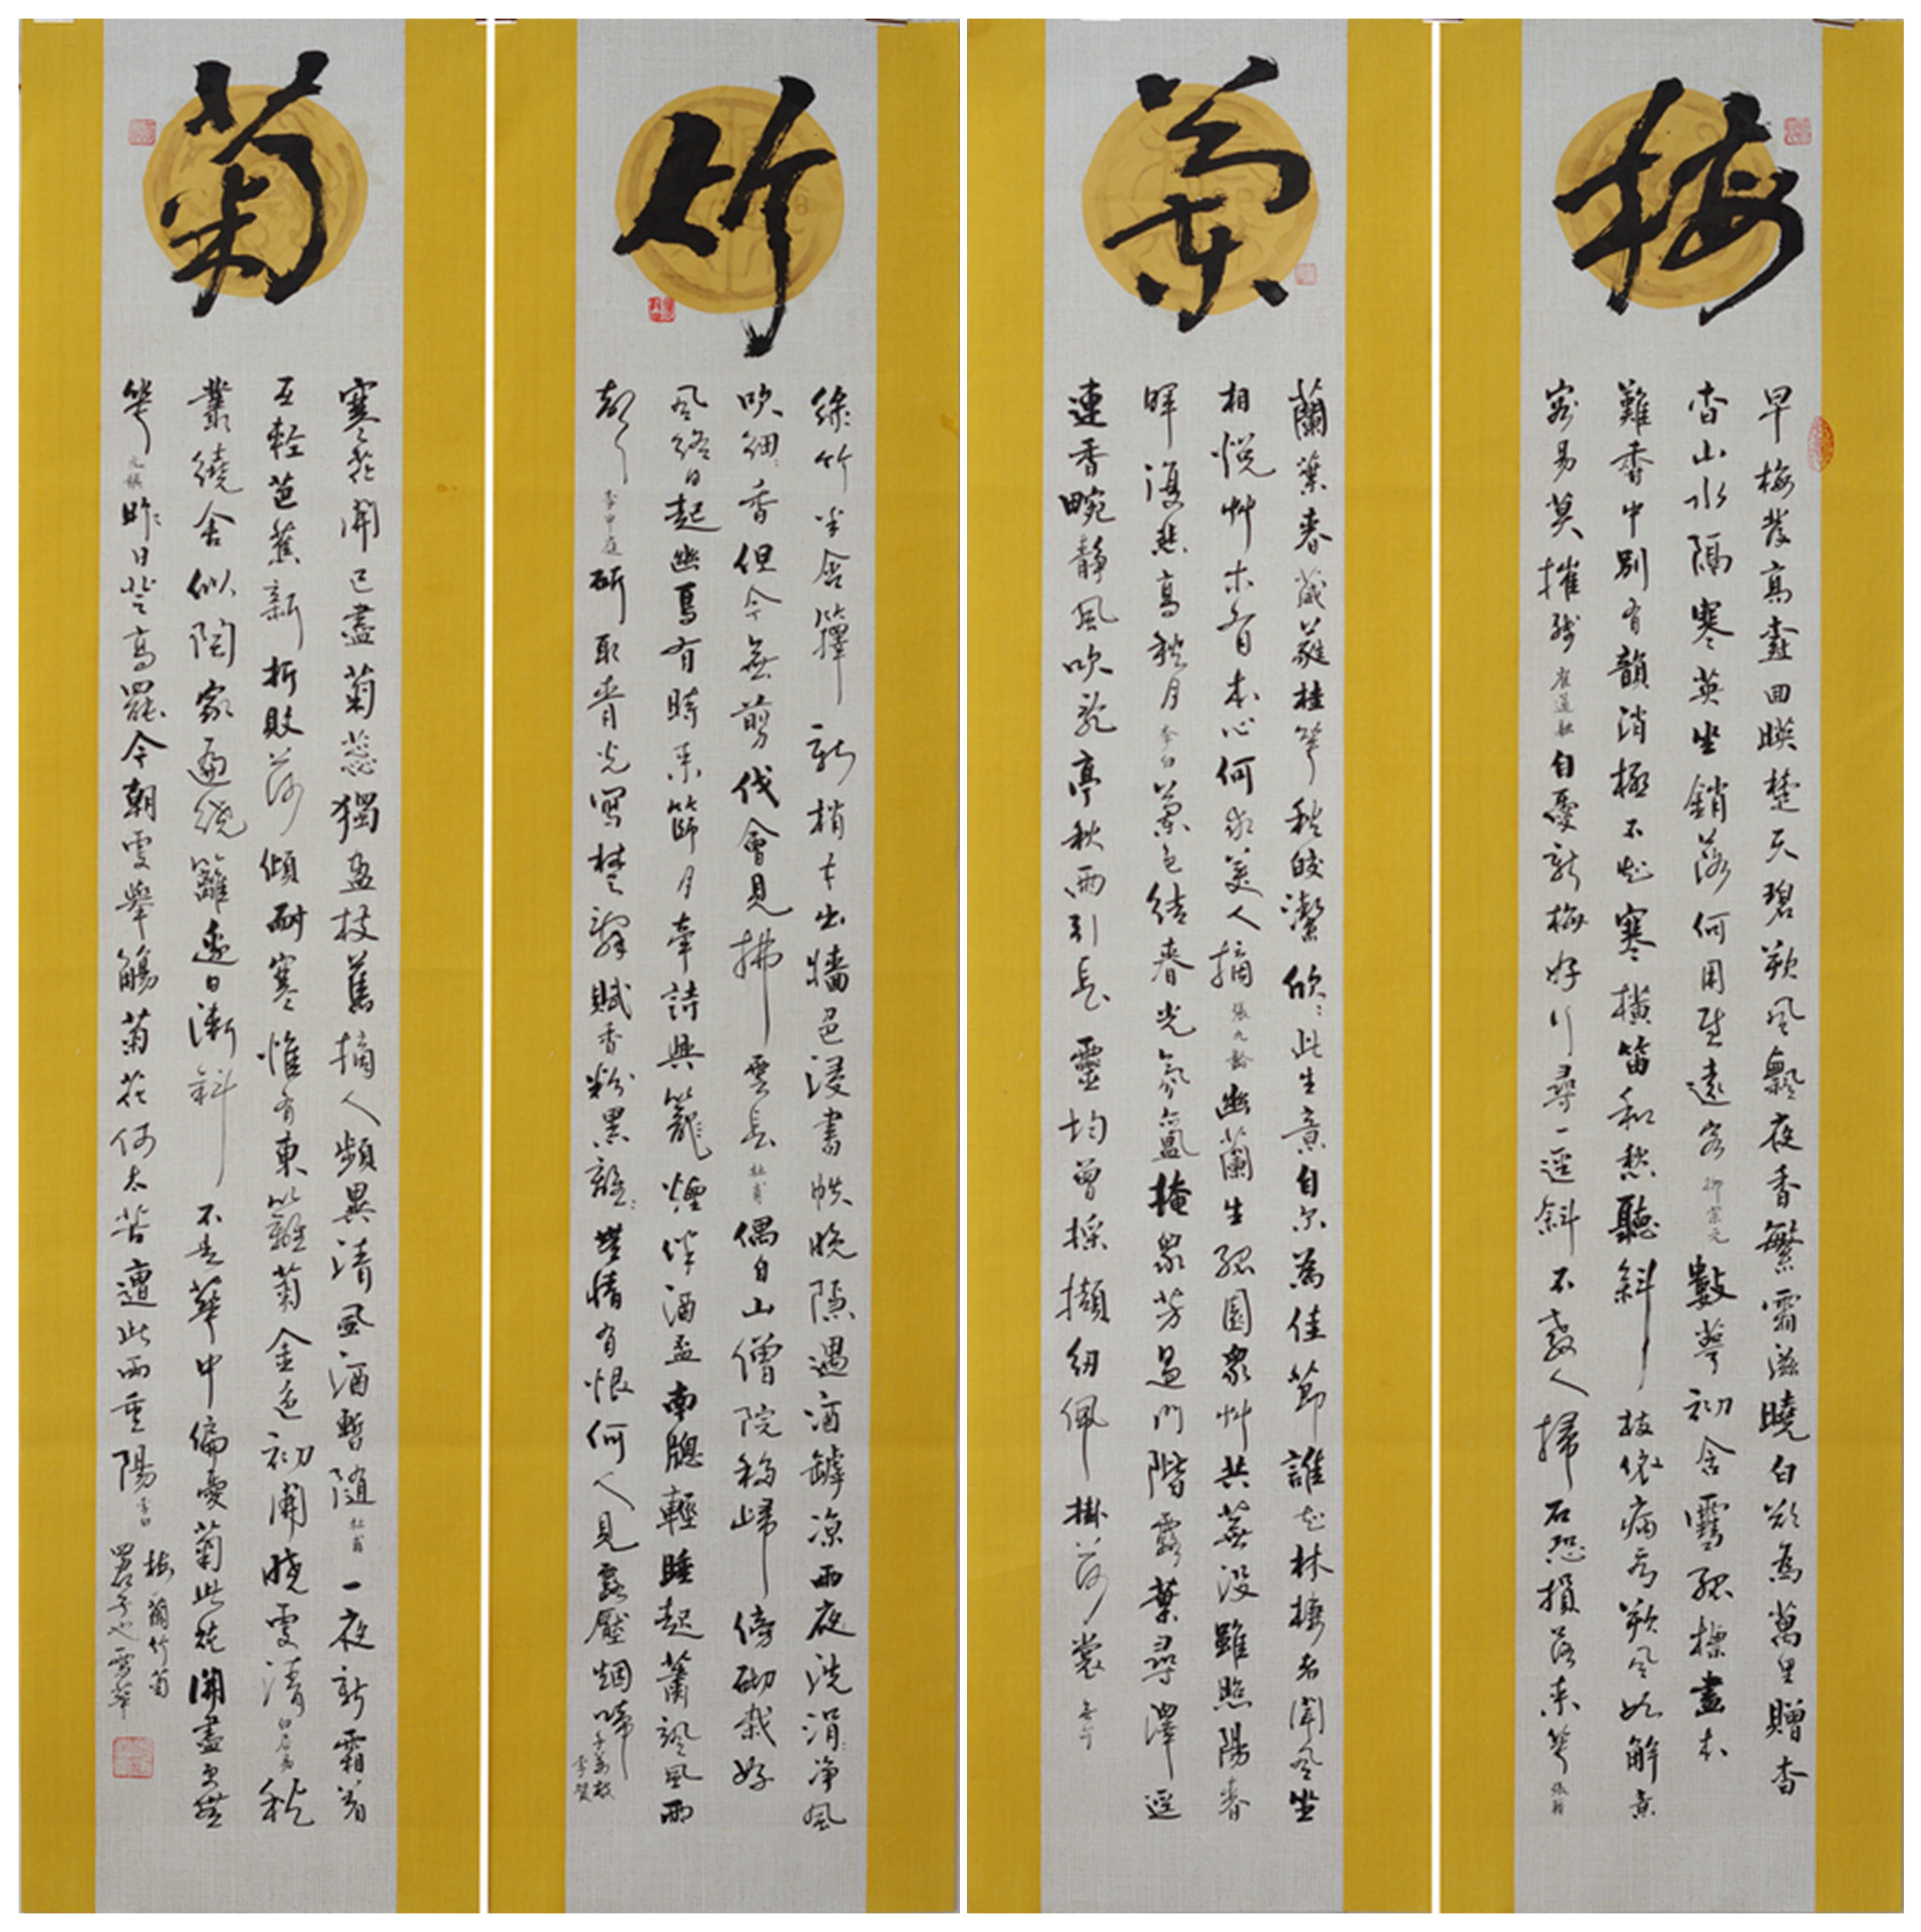 梅
早梅發高樹迥暎楚天碧朔風飄夜香繁霜滋曉白欲為萬里贈杳
杳山水隔寒英坐銷落何用慰遠客柳宗元數萼初含雪孤標畫本
難香中別有韻清極不知寒橫笛和愁聽斜枝依病看朔風如解意
容易莫摧殘崔道融自愛新梅好行尋一逕斜不教人掃石恐損落來華張籍
蘭
蘭葉春葳蕤桂華秋皎潔欣〻此生意自尔為佳節誰知林棲者聞風坐
相悅艸木有本心何求美人摘張九齡幽蘭生孤園眾艸共蕪沒雖照陽春
暉復悲高秋月李白蘭色結春光氛氳掩眾芳過門階露葉尋澤逕
連香畹靜風吹亂亭秋雨引長靈均曾採擷紉佩掛荷裳無可
竹
綠竹半含籜新梢才出牆色浸書帙晚隱過酒罇涼雨夜洗涓〻凈風
吹細〻香但令無剪伐會見拂雲長杜甫偶自山僧院移歸傍砌栽好
風終日起幽鳥有時來篩月牽詩興籠煙伴酒盃南窗輕睡起蕭颯風雨
聲李中庭斫取青光寫楚辭賦香粉黑離〻無情有恨何人見露壓烟啼千萬枝
李賀
菊
寒花開已盡菊蕊獨盈枝舊摘人頻異清風酒暫隨杜甫一夜新霜著
瓦輕芭蕉新折敗荷傾耐寒惟有東籬菊金色初開曉更清白居易秋
叢繞舍似陶家遍繞籬邊日漸斜不是華中偏愛菊此花開盡更無
華元稹昨日登高罷今朝更舉觴菊花何太苦遭此兩重陽李白
梅蘭竹菊
君子也雪華